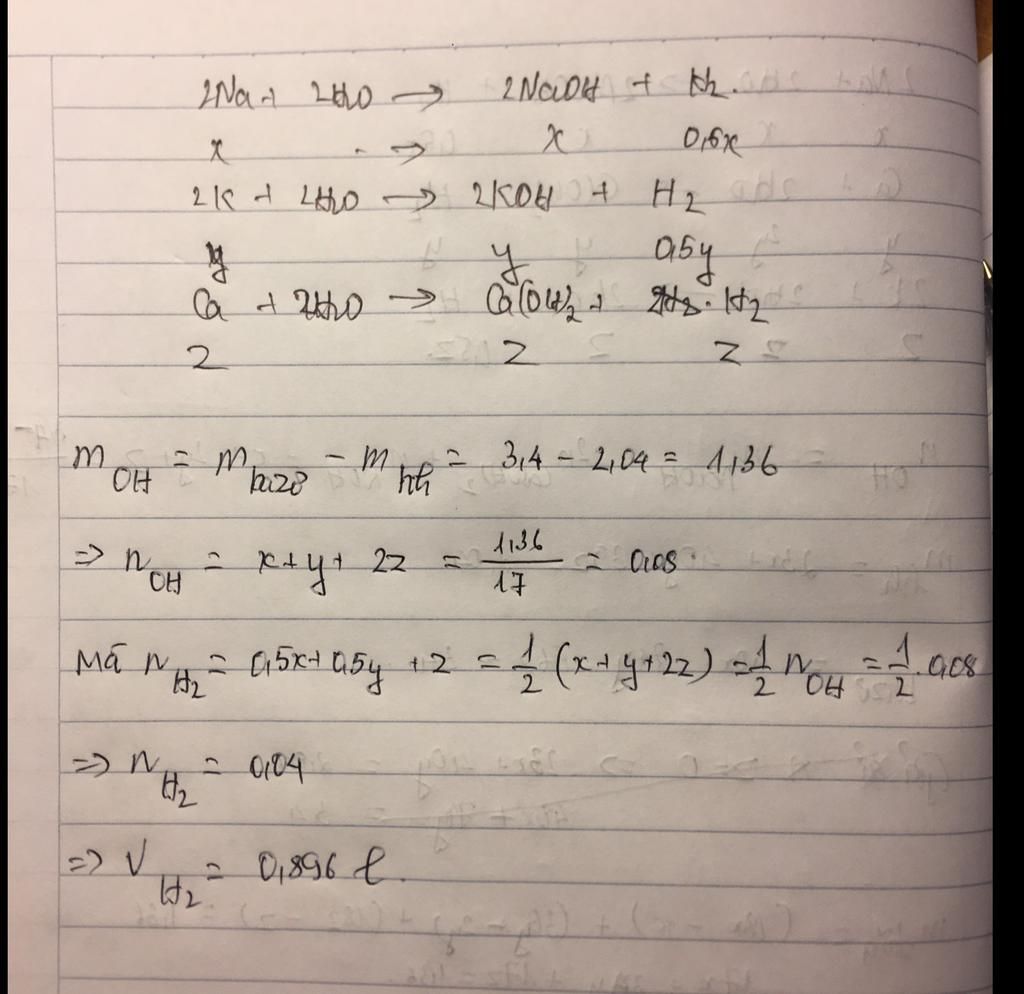 2Na + 2H2O → 2NaOH + H2.
x → x 0,5x
2K + 2H2O → 2KOH + H2
y y 0,5y
Ca + 2H2O → Ca(OH)2 + H2
z z z
mOH = mbazơ - mhh = 3,4 - 2,04 = 1,36
=> nOH = x+y+ 2z = 1,36/17 = 0,08.
Mà nH2 = 0,5x+0,5y + z = 1/2 (x+y+2z) = 1/2 nOH = 1/2 . 0,08
=> nH2 = 0,04
=> VH2 = 0,896 l.